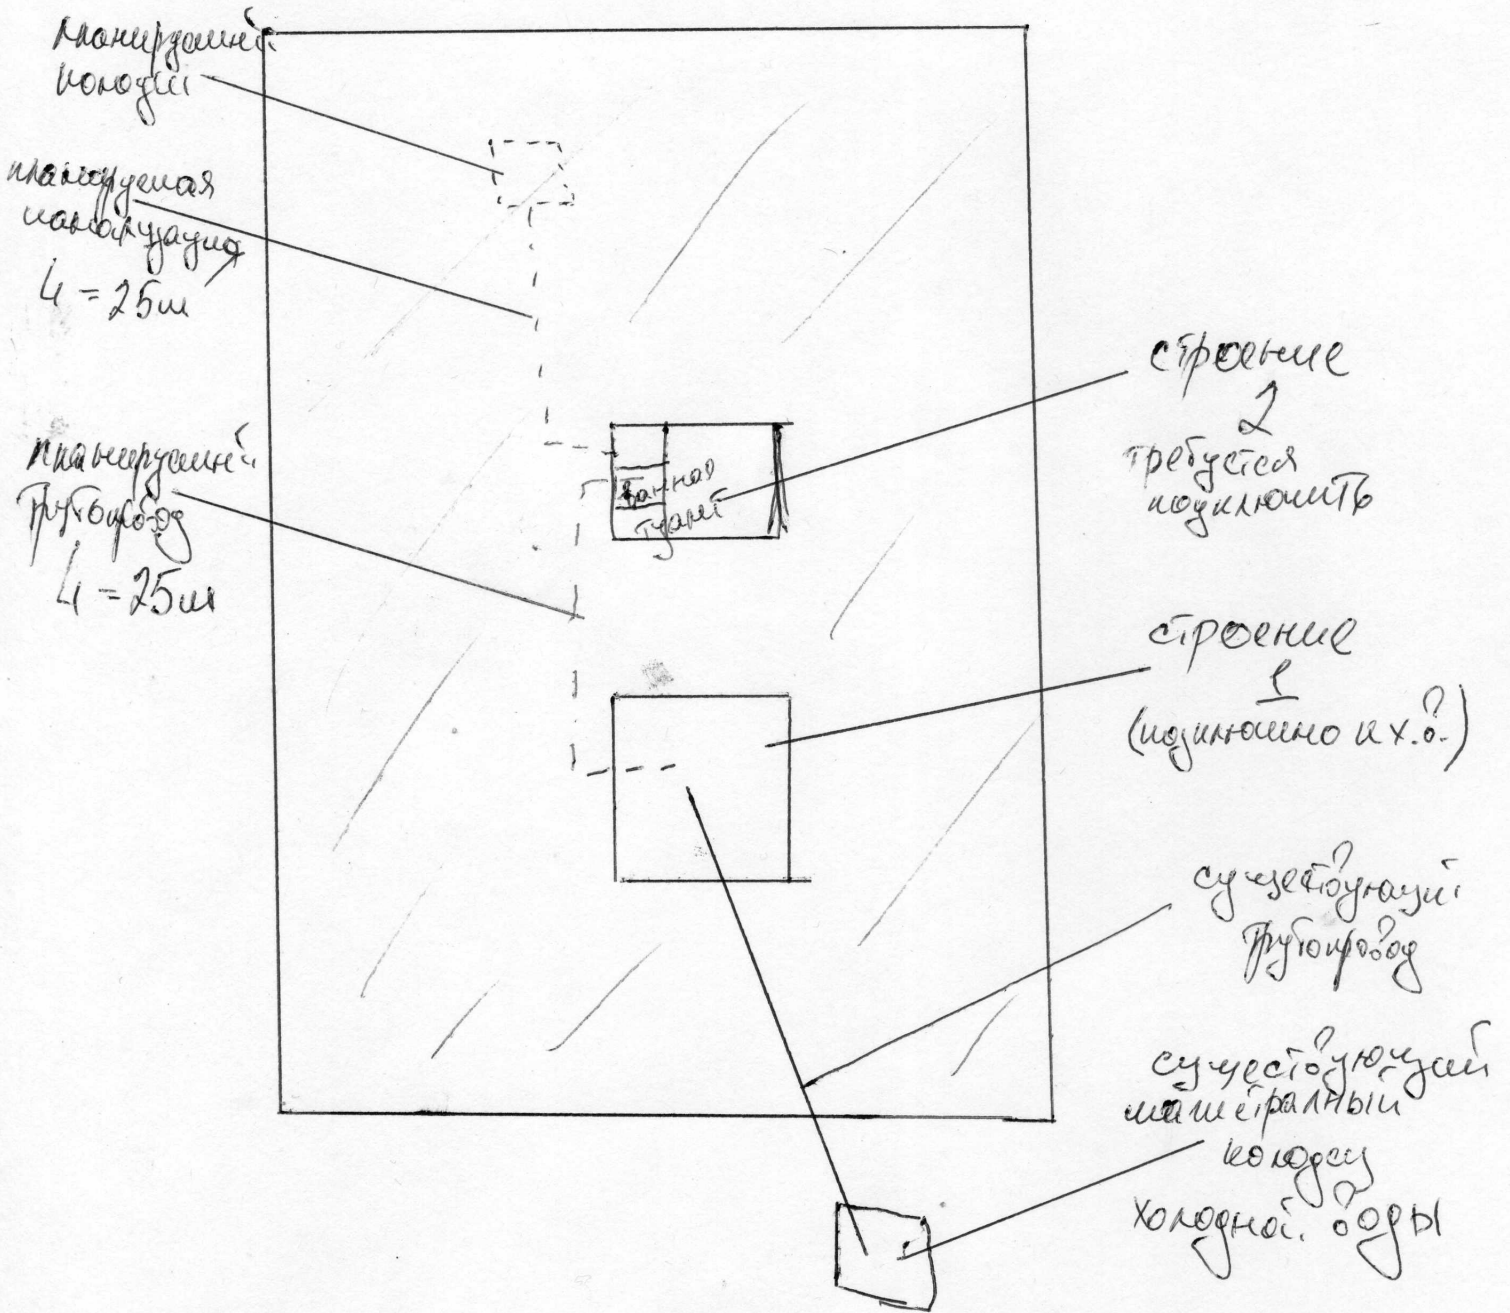 планируемый
колодец
планируемая
канализация
L = 25м
планируемый
трубопровод
L = 25м
Ванная
туалет
строение
2
требуется
подключить
строение
1
(подключено к х.в.)
существующий
трубопровод
существующий
магистралный
колодец
холодной воды